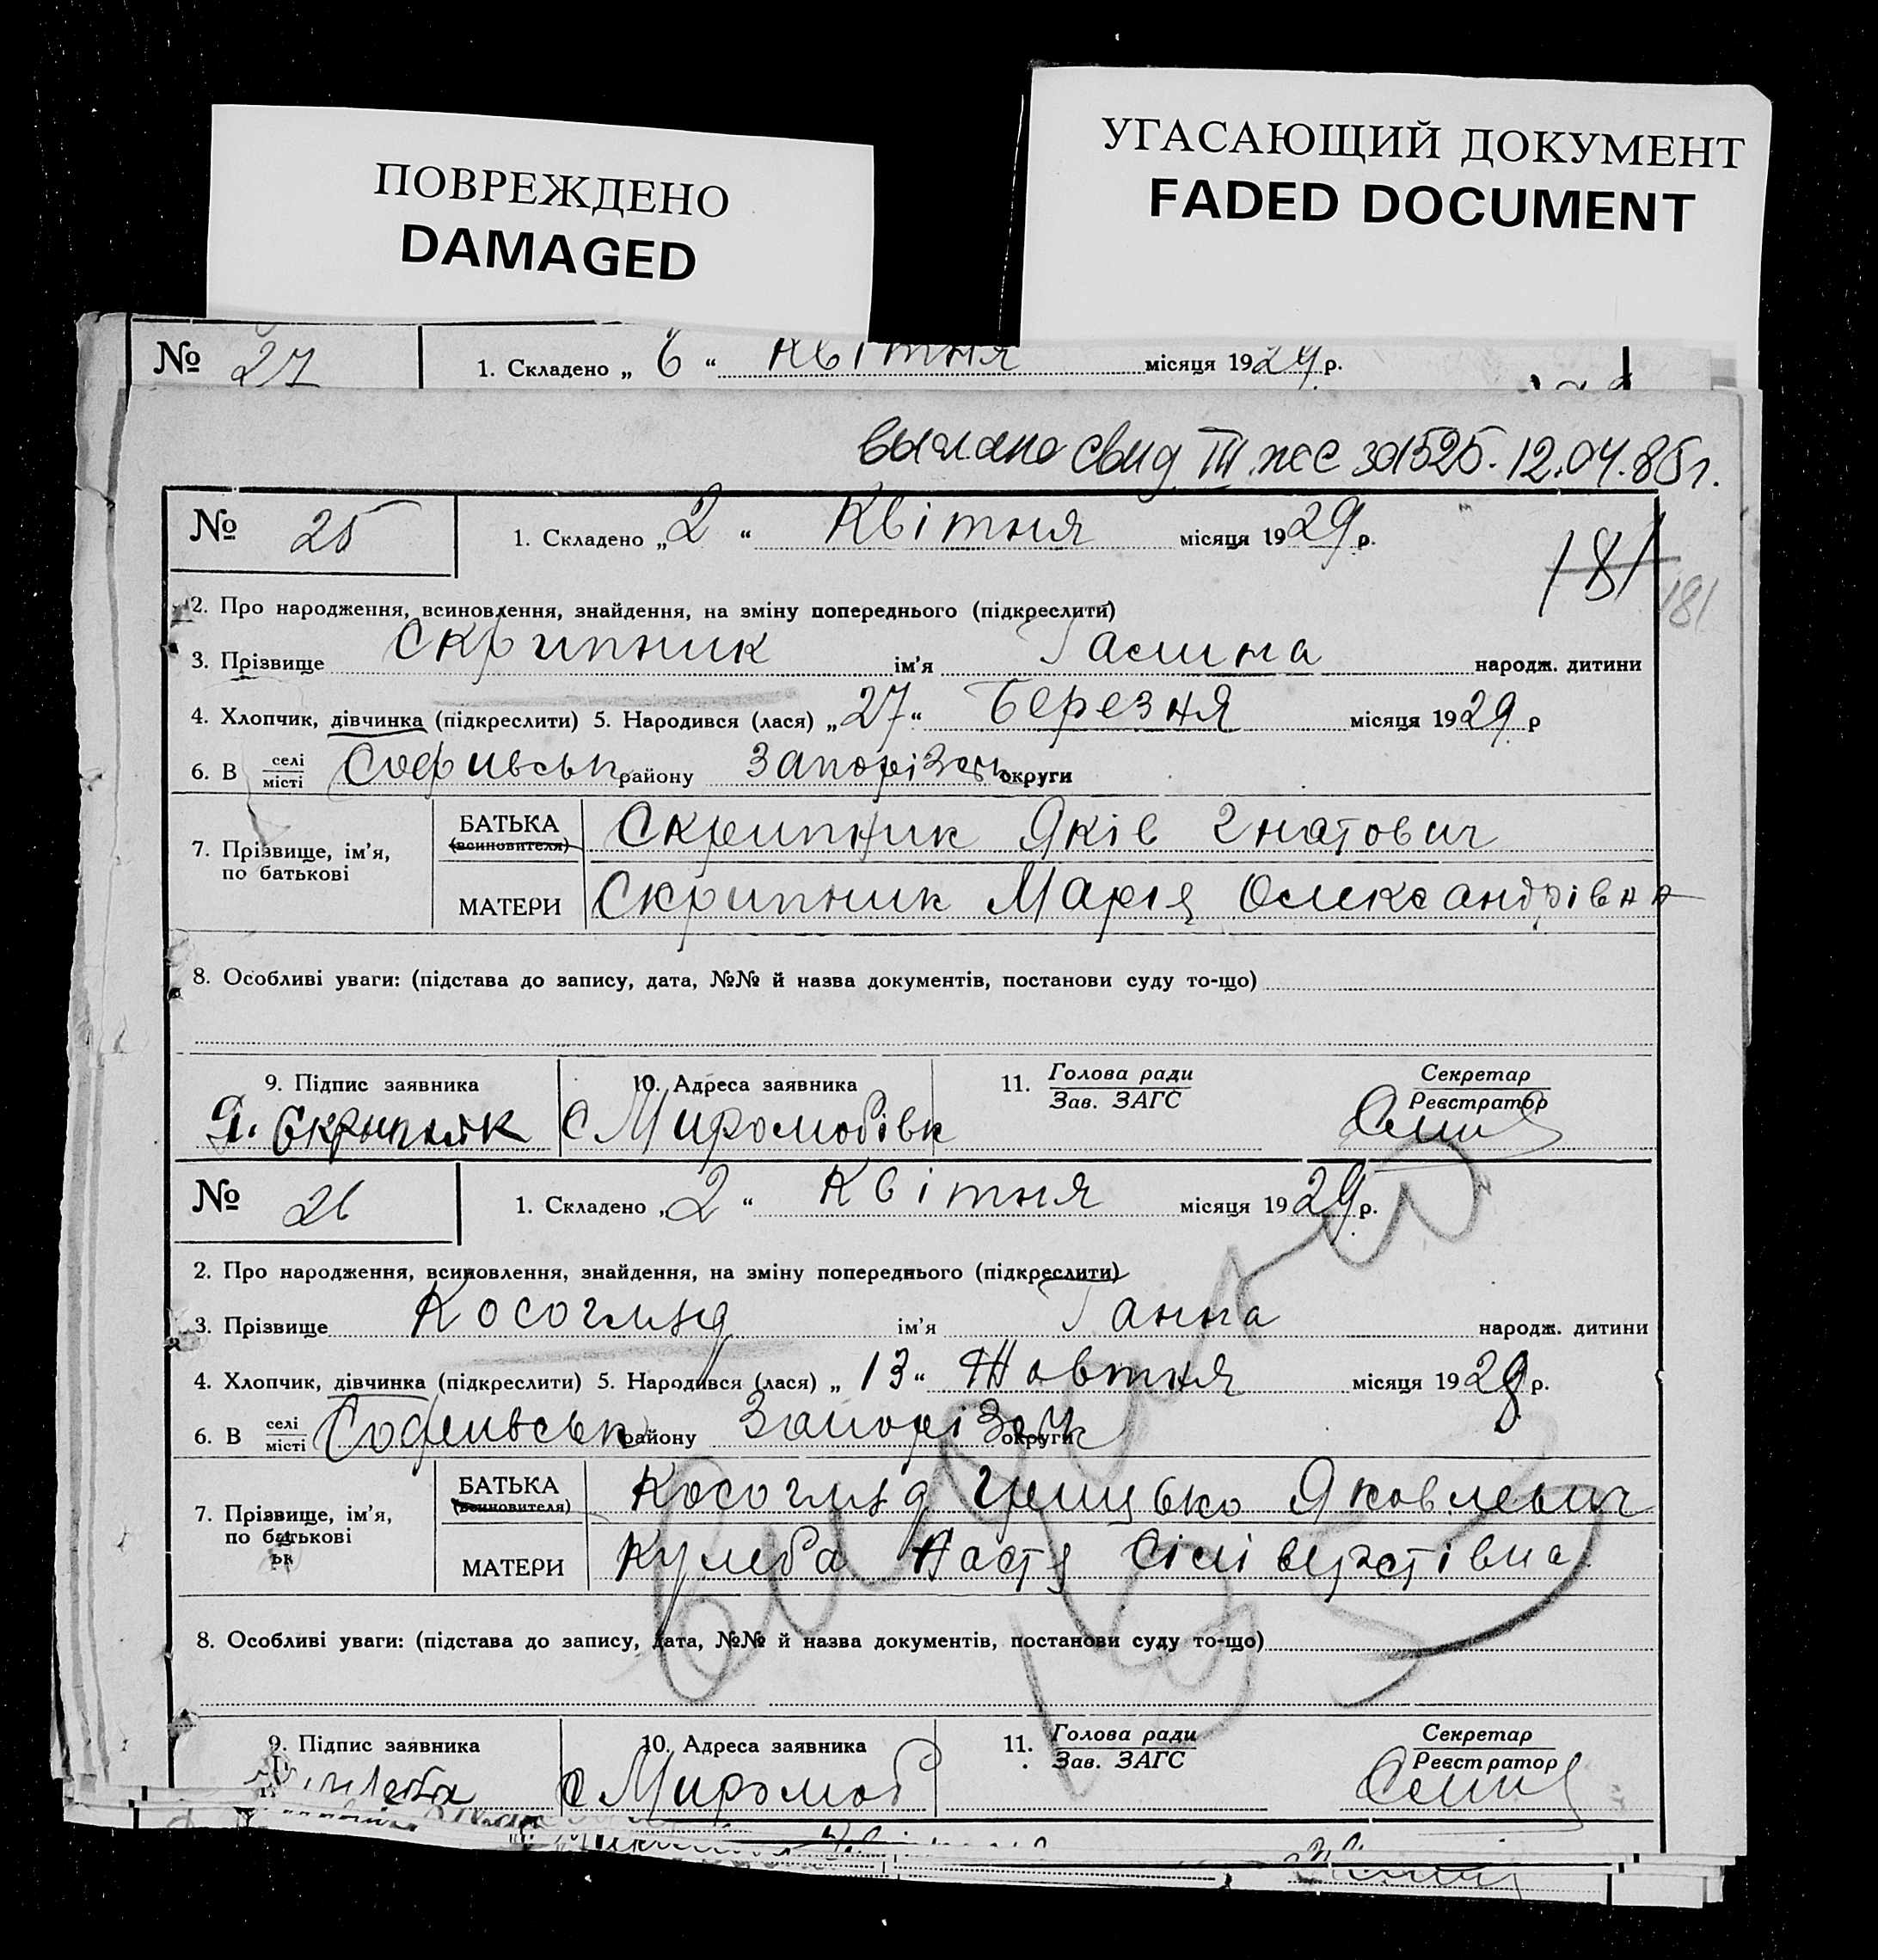 ПОВРЕЖДЕНО
DAMAGED
УГАСАЮЩИЙ ДОКУМЕНТ
FADED DOCUMENT
№ 27 1. Складено „ 6 “ квітня місяця 1929 р.
выдано свид III жс 301525. 12.04.85 г.
№ 25 1. Складено „ 2 “ Квітня місяця 1929 р.
181 181
2. Про народження, всиновлення, знайдення, на зміну попереднього (підкреслити)
3. Прізвище Скрипник ім’я Галина народж. дитини
4. Хлопчик, дівчинка (підкреслити) 5. Народився (лася) „ 27 “ Березня місяця 1929 р
6. В селі місті Софивськ району Запорізськ округи
7. Прізвище, ім’я, по батькові
БАТЬКА (всиновителя) Скрипник Яків Гнатович
МАТЕРИ Скрипник Марія Олександрівна
8. Особливі уваги: (підстава до запису, дата, №№ й назва документів, постанови суду то-що)
9. Підпис заявника 10. Адреса заявника 11. Голова ради Зав. ЗАГС Секретар Реєстратор
Я. Скрыпник С Миролюбівк
№ 26 1. Складено „ 2 “ Квітня місяця 1929 р.
2. Про народження, всиновлення, знайдення, на зміну попереднього (підкреслити)
3. Прізвище Косогляд ім’я Ганна народж. дитини
4. Хлопчик, дівчинка (підкреслити) 5. Народився (лася) „ 13 “ Жовтня місяця 1928 р.
6. В селі місті Софиивськ району Запорізск округи
7. Прізвище, ім’я, по батькові
БАТЬКА (всиновителя) Косогляд Грицько Яковлевич
МАТЕРИ Кулеба Настя Сіліверстівна
8. Особливі уваги: (підстава до запису, дата, №№ й назва документів, постанови суду то-що)
9. Підпис заявника 10. Адреса заявника 11. Голова ради Зав. ЗАГС Секретар Реєстратор
С Миролюб